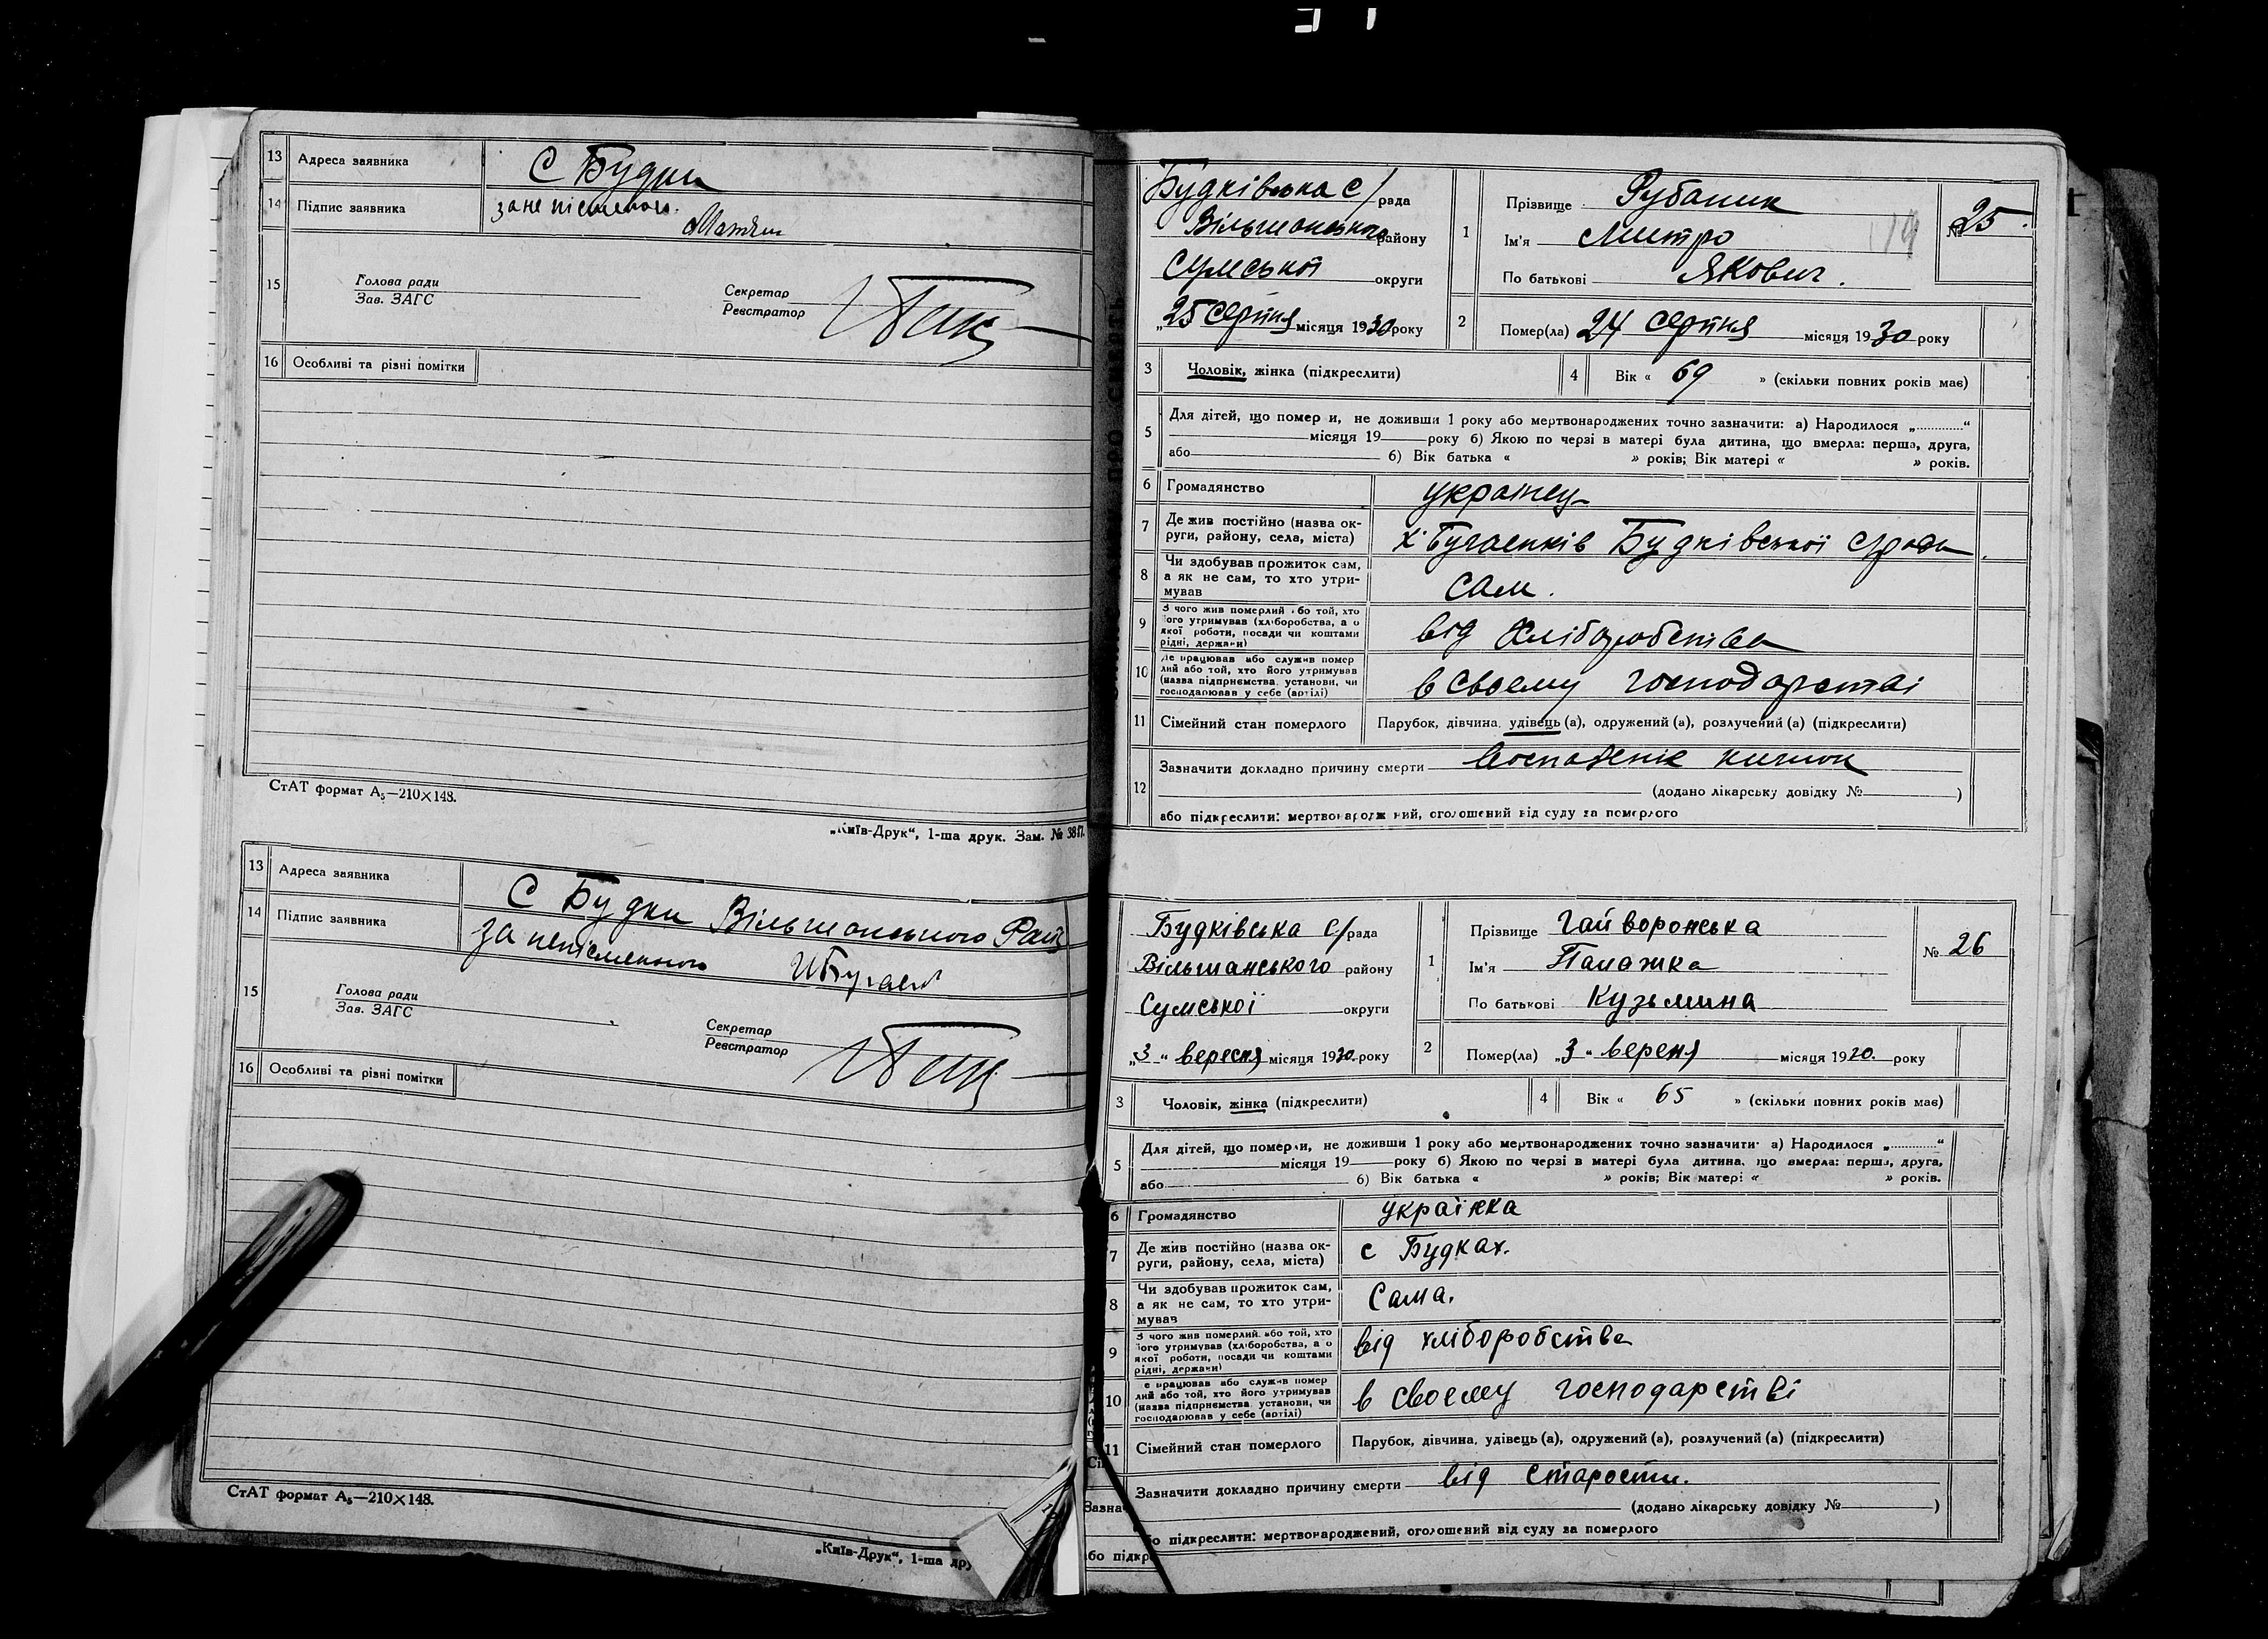 13 Адреса заявника С Будки
14 Підпис заявника за непісьменого
15 Голова ради
Зав. ЗАГС
Секретар
Реєстратор
16 Особливі та різні помітки
СтАТ формат А₅—210×148.
„Київ-Друк“, 1-ша друк. Зам. №
13 Адреса заявника С Будки Вільшанського Рай
14 Підпис заявника за непісьменого
15 Голова ради
Зав. ЗАГС
Секретар
Реєстратор
16 Особливі та різні помітки
СтАТ формат А₅—210×148.
„Київ-Друк“, 1-ша дру
Будківська с/рада
Вільшанського району
Сумської округи
„25 серпня місяця 1930 року
1 Прізвище Рубаник
Ім'я Дмитро
По батькові Якович.
№ 25.
2 Помер(ла) 24 серпня місяця 1930 року
3 Чоловік, жінка (підкреслити)
4 Вік « 69 » (скільки повних років має)
5 Для дітей, що помер и, не доживши 1 року або мертвонароджених точно зазначити: а) Народилося „............“
місяця 19 року б) Якою по черзі в матері була дитина, що вмерла: перша, друга,
або 6) Вік батька « » років; Вік матері « » років.
6 Громадянство українец
7 Де жив постійно (назва ок-
руги, району, села, міста) х. Бугаєнків Будківської с/ради
8 Чи здобував прожиток сам,
а як не сам, то хто утри-
мував сам.
9 З чого жив померлий або той, хто
його утримував (хліборобства, а о
якої роботи, посади чи коштами
рідні, держави) від хліборобства
10 Де працював або служив помер
лий або той, хто його утримував
(назва підприємства, установи, чи
господарював у себе (артілі) в своєму господарстві
11 Сімейний стан померлого Парубок, дівчина, удівець (а), одружений (а), розлучений (а) (підкреслити)
12 Зазначити докладно причину смерти воспаленіє кишок
(додано лікарську довідку № )
або підкреслити: мертвонароджений, оголошений від суду за померлого
Будківська с/рада
Вільшанського району
Сумської округи
„3“ вересня місяця 1930. року
1 Прізвище Гайворонська
Ім'я Палажка
По батькові Кузьмина
№ 26
2 Помер(ла) „3“ вереня місяця 1930. року
3 Чоловік, жінка (підкреслити)
4 Вік « 65 » (скільки повних років має)
5 Для дітей, що померли, не доживши 1 року або мертвонароджених точно зазначити: а) Народилося „............“
місяця 19 року б) Якою по черзі в матері була дитина, що вмерла: перша, друга,
або 6) Вік батька « » років; Вік матері « » років.
6 Громадянство українка
7 Де жив постійно (назва ок-
руги, району, села, міста) с Будках.
8 Чи здобував прожиток сам,
а як не сам, то хто утри-
мував Сама.
9 З чого жив померлий, або той, хто
його утримував (хліборобства, а о
якої роботи, посади чи коштами
рідні, держави) від хліборобства
10 е працював або служив помер
лий або той, хто його утримував
(назва підприємства, установи, чи
господарював у себе (артілі) в своєму господарстві
11 Сімейний стан померлого Парубок, дівчина, удівець (а), одружений (а), розлучений (а) (підкреслити)
Зазначити докладно причину смерти від старости.
(додано лікарську довідку № )
бо підкреслити: мертвонароджений, оголошений від суду за померлого
бо підкр